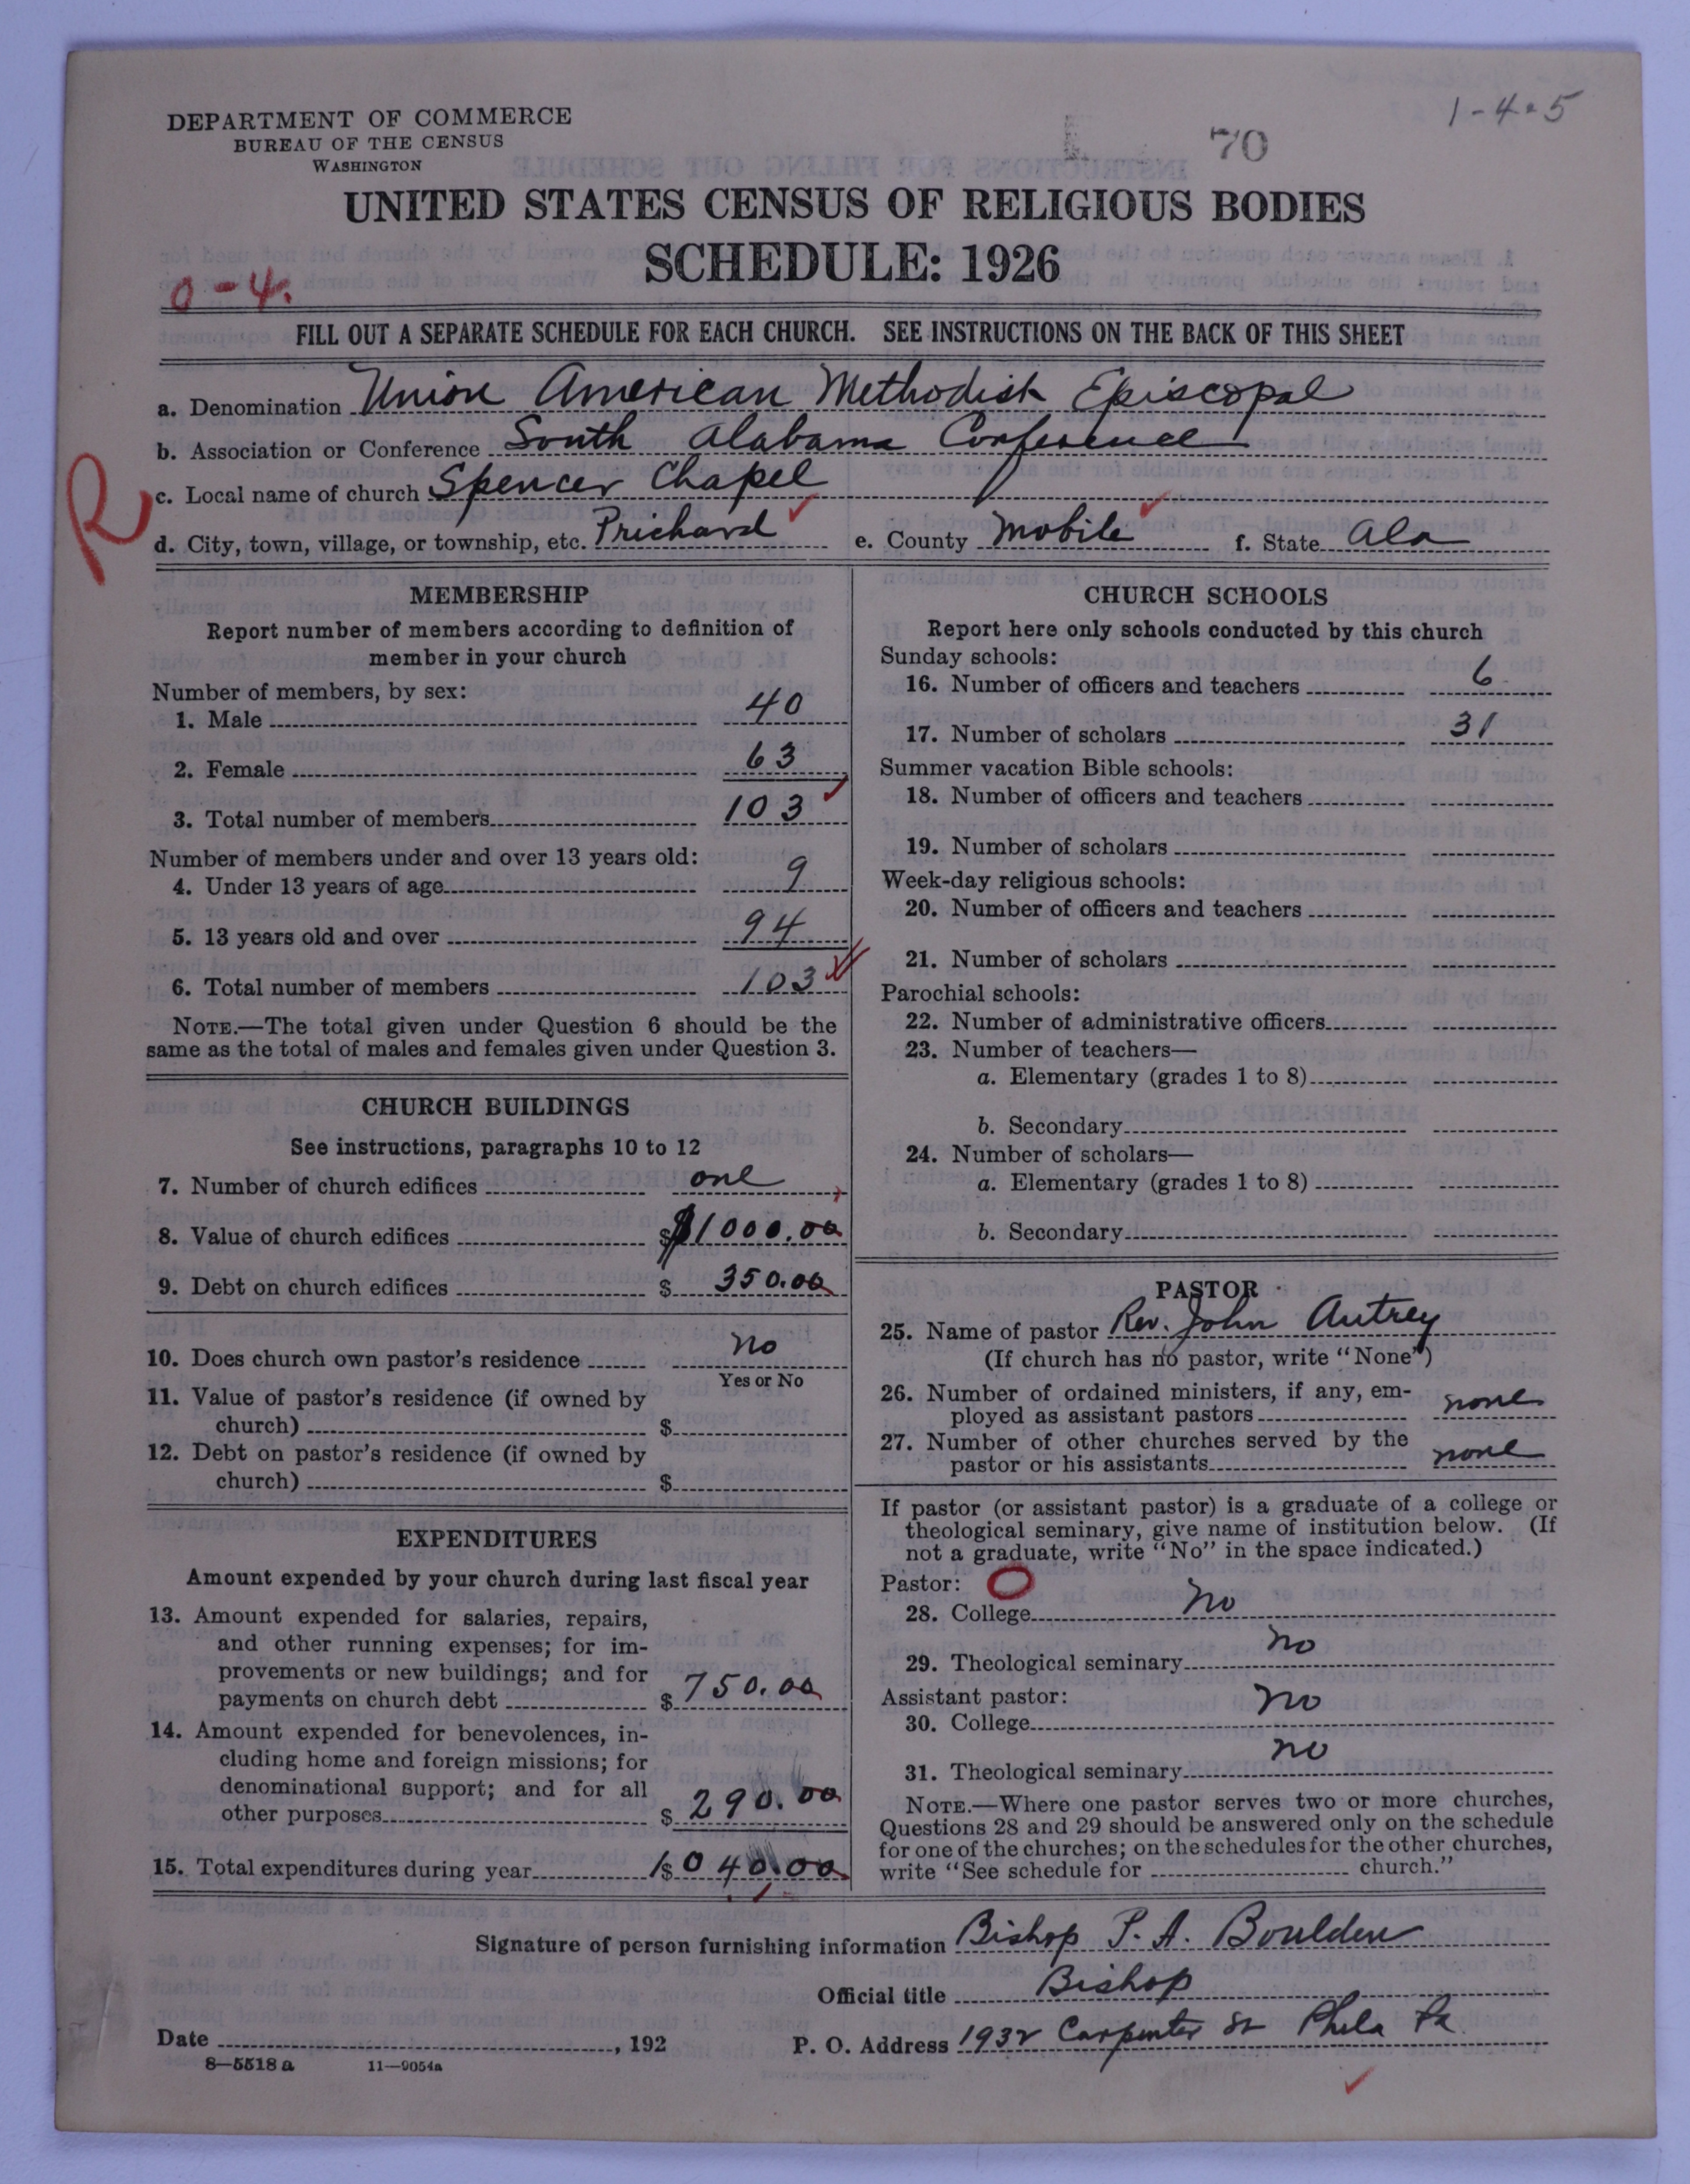 1-4-5
DEPARTMENT OF COMMERCE
BUREAU OF THE CENSUS
WASHINGTON
70
UNITED STATES CENSUS OF RELIGIOUS BODIES
SCHEDULE: 1926
0-4.
FILL OUT A SEPARATE SCHEDULE FOR EACH CHURCH. SEE INSTRUCTIONS ON THE BACK OF THIS SHEET
a. Denomination Union American Methodist Episcopal
b. Association or Conference South Alabama Conference
R
c. Local name of church Spencer Chapel
d. City, town, village, or township, etc. Prichard e. County Mobile f. State Ala
MEMBERSHIP
Report number of members according to definition of
member in your church
Number of members, by sex:
1. Male 40
2. Female 63
3. Total number of members 103
Number of members under and over 13 years old:
4. Under 13 years of age 9
5. 13 years old and over 94
6. Total number of members 103
NOTE.—The total given under Question 6 should be the
same as the total of males and females given under Question 3.
CHURCH BUILDINGS
See instructions, paragraphs 10 to 12
7. Number of church edifices one
8. Value of church edifices $1000.00
9. Debt on church edifices $ 350.00
10. Does church own pastor's residence no
Yes or No
11. Value of pastor's residence (if owned by
church) $
12. Debt on pastor's residence (if owned by
church) $
EXPENDITURES
Amount expended by your church during last fiscal year
13. Amount expended for salaries, repairs,
and other running expenses; for im-
provements or new buildings; and for
payments on church debt $ 750.00
14. Amount expended for benevolences, in-
cluding home and foreign missions; for
denominational support; and for all
other purposes $ 290.00
15. Total expenditures during year 1$040.00
CHURCH SCHOOLS
Report here only schools conducted by this church
Sunday schools:
16. Number of officers and teachers 6
17. Number of scholars 31
Summer vacation Bible schools:
18. Number of officers and teachers
19. Number of scholars
Week-day religious schools:
20. Number of officers and teachers
21. Number of scholars
Parochial schools:
22. Number of administrative officers
23. Number of teachers—
a. Elementary (grades 1 to 8)
b. Secondary
24. Number of scholars—
a. Elementary (grades 1 to 8)
b. Secondary
PASTOR
25. Name of pastor Rev. John Autrey
(If church has no pastor, write "None")
26. Number of ordained ministers, if any, em-
ployed as assistant pastors none
27. Number of other churches served by the
pastor or his assistants none
If pastor (or assistant pastor) is a graduate of a college or
theological seminary, give name of institution below. (If
not a graduate, write "No" in the space indicated.)
Pastor: O
28. College no
29. Theological seminary no
Assistant pastor:
30. College no
31. Theological seminary no
NOTE.—Where one pastor serves two or more churches,
Questions 28 and 29 should be answered only on the schedule
for one of the churches; on the schedules for the other churches,
write "See schedule for church."
Signature of person furnishing information Bishop P. A. Boulden
Official title Bishop
Date , 192 P. O. Address 1932 Carpenter St Phila Pa
8—5518 a 11—9054a